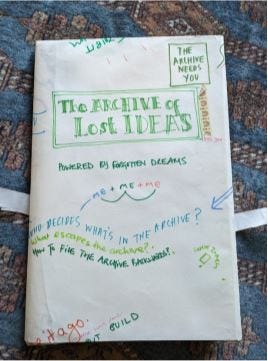 THE
ARCHIVE
NEEDS
YOU
The ARCHIVE of
Lost IDEAS
POWERED BY FORGOTTEN DREAMS
ME + ME + ME
WHO DECIDES WHAT'S IN THE ARCHIVE?
What escapes the archive?
HOW TO FILE THE ARCHIVE BACKWARDS?
tago.
BUILD